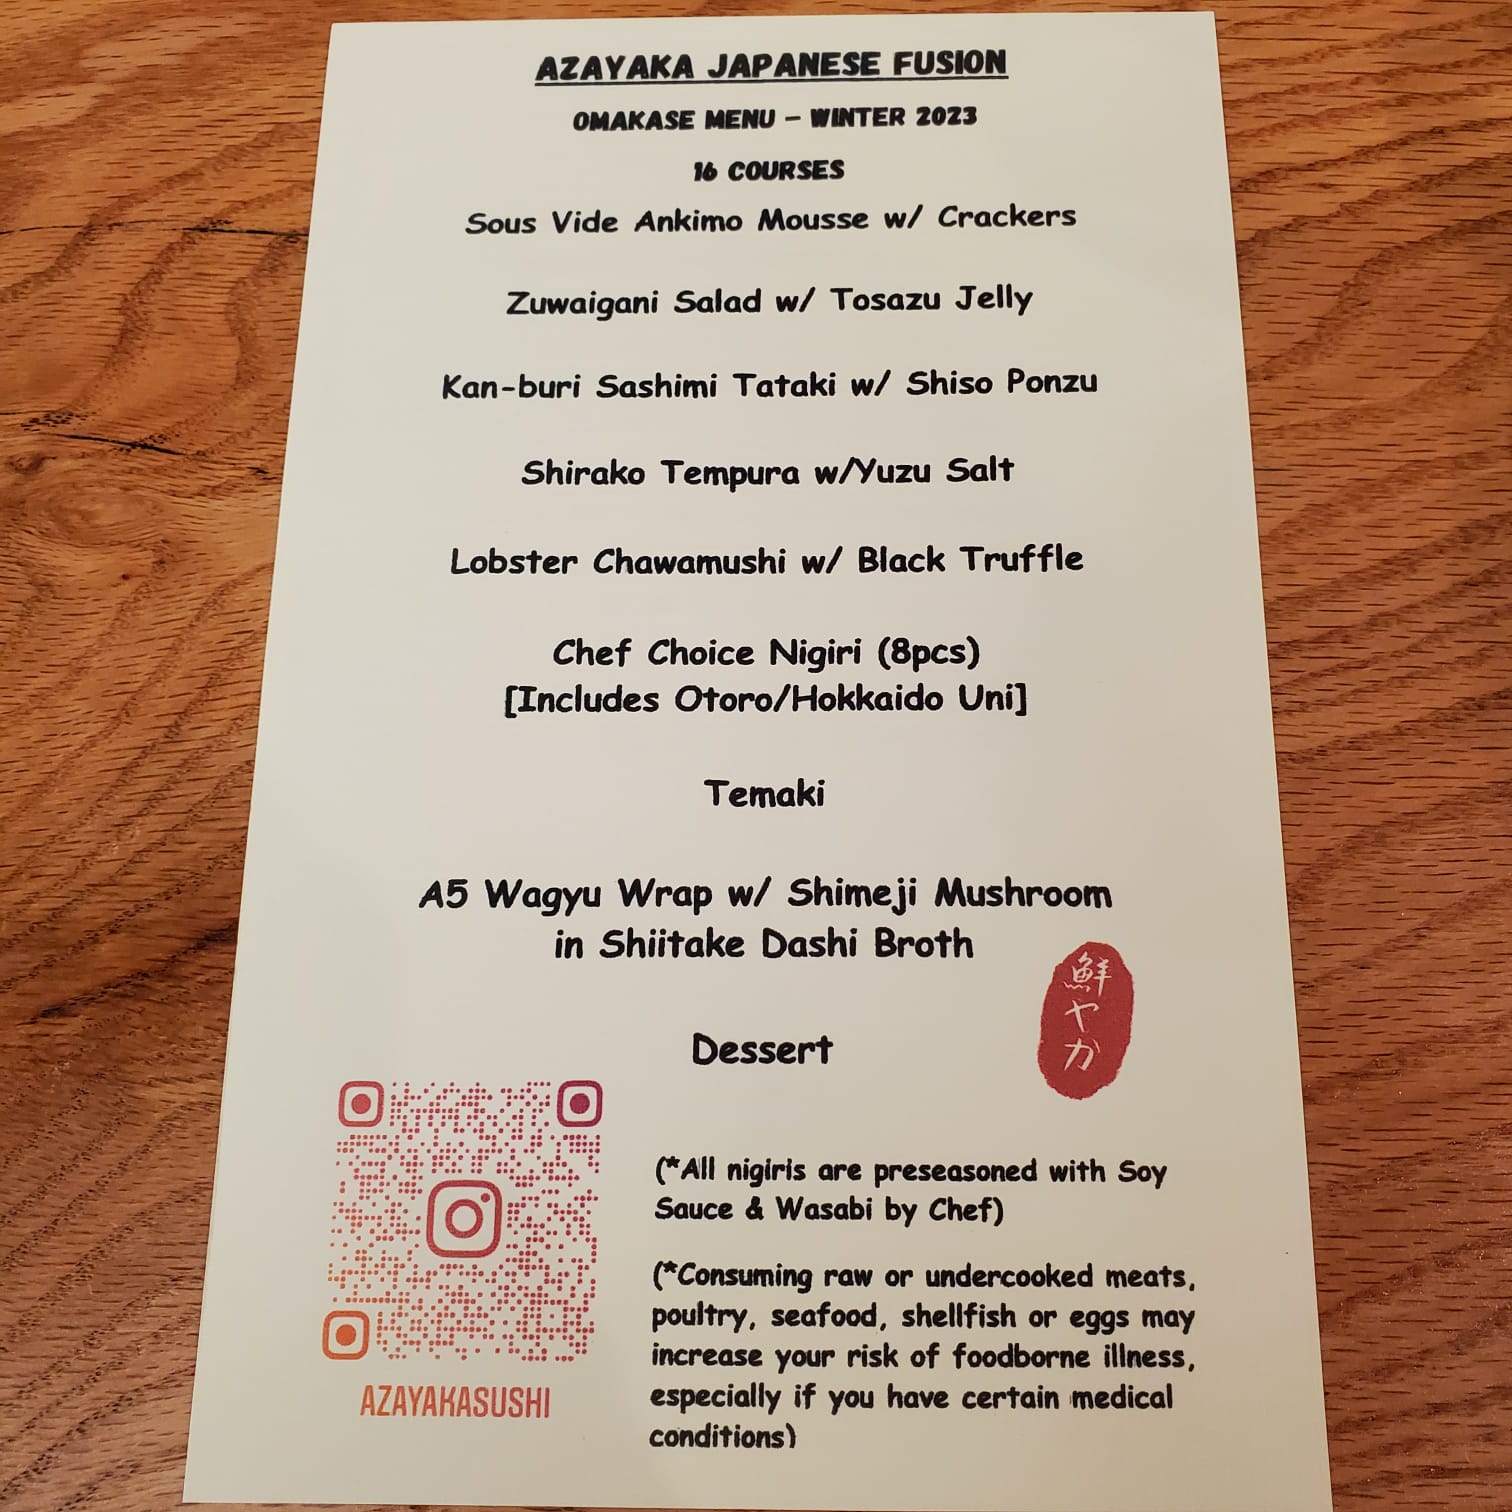 AZAYAKA JAPANESE FUSION
OMAKASE MENU – WINTER 2023
16 COURSES
Sous Vide Ankimo Mousse w/ Crackers
Zuwaigani Salad w/ Tosazu Jelly
Kan-buri Sashimi Tataki w/ Shiso Ponzu
Shirako Tempura w/Yuzu Salt
Lobster Chawamushi w/ Black Truffle
Chef Choice Nigiri (8pcs)
[Includes Otoro/Hokkaido Uni]
Temaki
A5 Wagyu Wrap w/ Shimeji Mushroom
in Shiitake Dashi Broth
鮮やか
Dessert
(*All nigiris are preseasoned with Soy
Sauce & Wasabi by Chef)
(*Consuming raw or undercooked meats,
poultry, seafood, shellfish or eggs may
increase your risk of foodborne illness,
especially if you have certain medical
conditions)
AZAYAKASUSHI